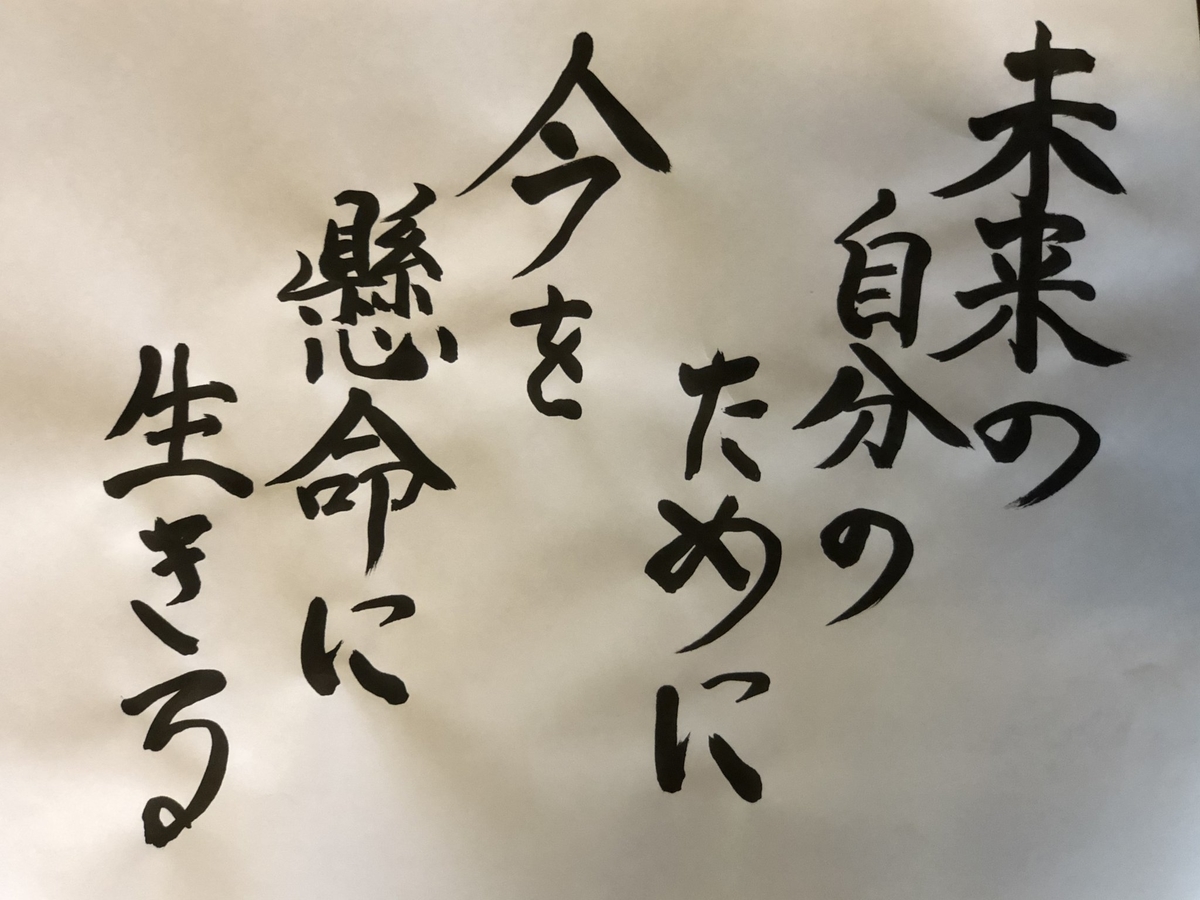 未来の
自分の
ために
今を
懸命に
生きる